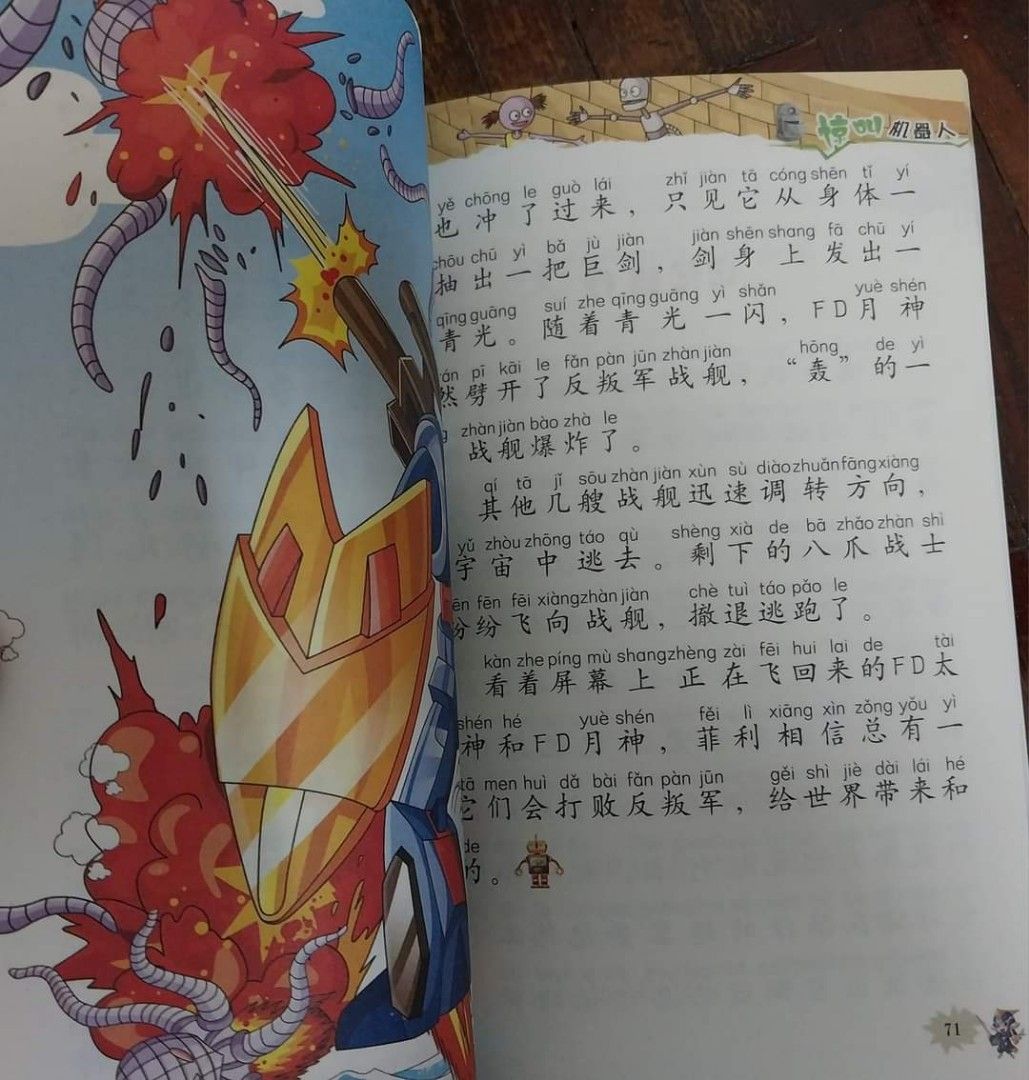 惊叫机器人
yě chōng le guò lái zhǐ jiàn tā cóng shēn tǐ yí
也冲了过来，只见它从身体一
chōu chū yì bǎ jù jiàn jiàn shēn shang fā chū yí
抽出一把巨剑，剑身上发出一
qīng guāng suí zhe qīng guāng yì shǎn yuè shén
青光。随着青光一闪，FD月神
pī kāi le fǎn pàn jūn zhàn jiàn hōng de yì
然劈开了反叛军战舰，“轰”的一
zhàn jiàn bào zhà le
战舰爆炸了。
qí tā jǐ sōu zhàn jiàn xùn sù diào zhuǎn fāng xiàng
其他几艘战舰迅速调转方向，
yǔ zhòu zhōng táo qù shèng xià de bā zhǎo zhàn shì
宇宙中逃去。剩下的八爪战士
fēn fēi xiàng zhàn jiàn chè tuì táo pǎo le
纷纷飞向战舰，撤退逃跑了。
kàn zhe píng mù shang zhèng zài fēi hui lai de tài
看着屏幕上正在飞回来的FD太
shén hé yuè shén fěi lì xiāng xìn zǒng yǒu yì
神和FD月神，菲利相信总有一
tā men huì dǎ bài fǎn pàn jūn gěi shì jiè dài lái hé
它们会打败反叛军，给世界带来和
de
的。
71